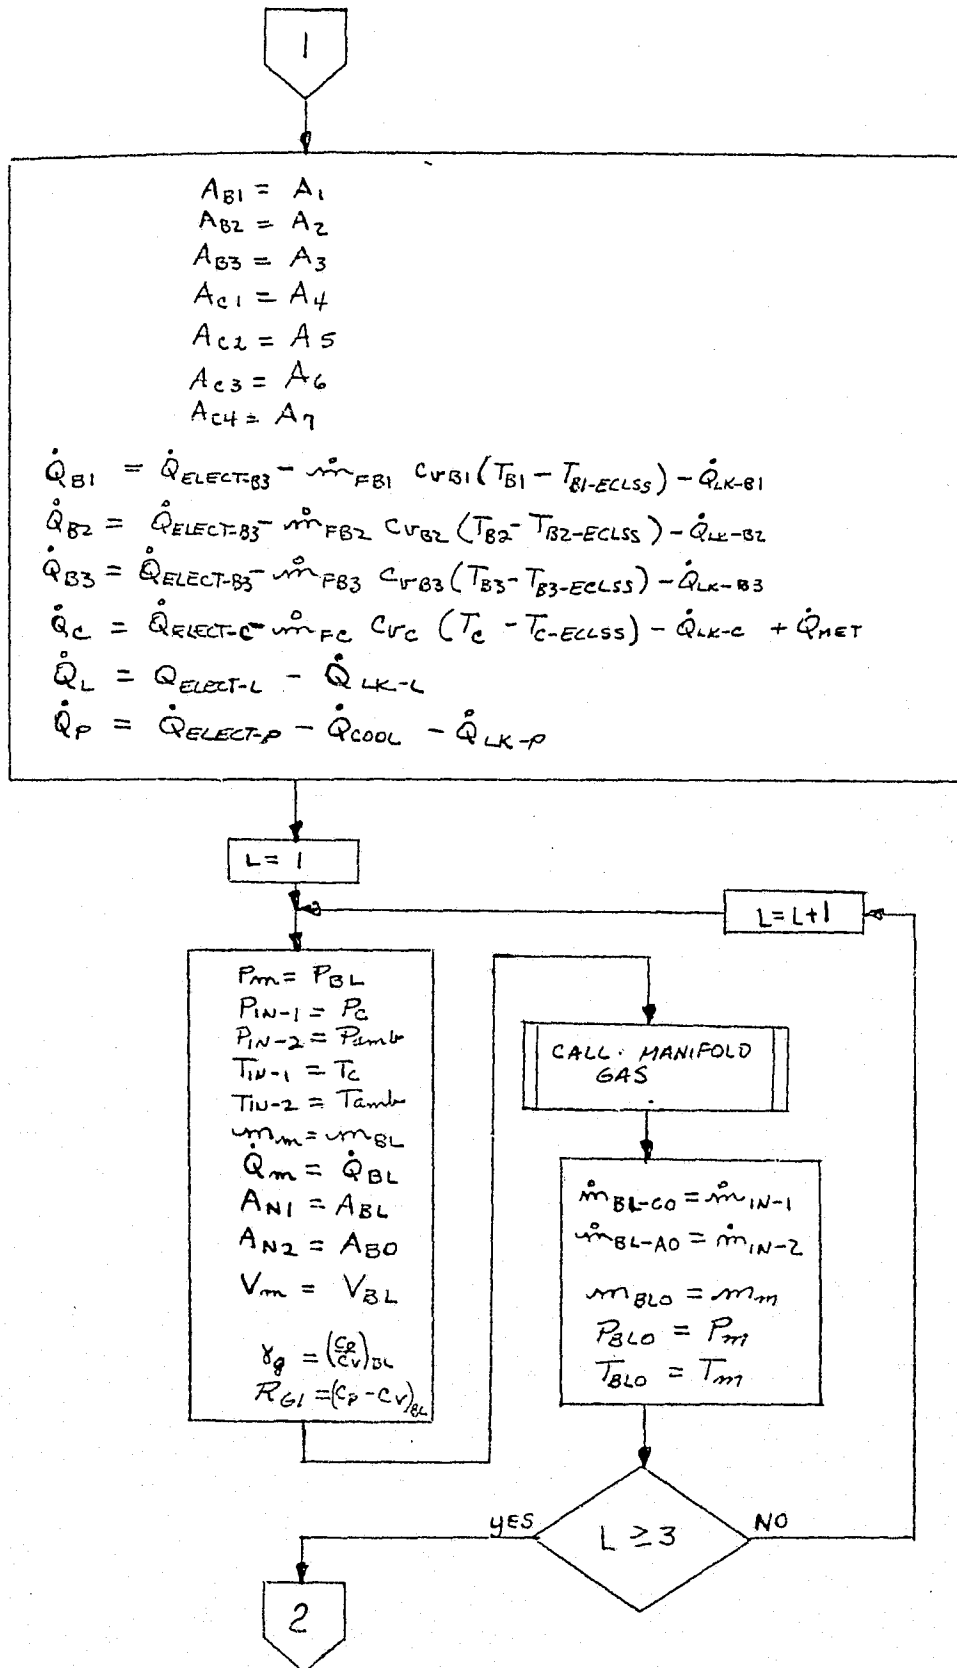 1
A_B1 = A_1
A_B2 = A_2
A_B3 = A_3
A_C1 = A_4
A_C2 = A_5
A_C3 = A_6
A_C4 = A_7
Q̇_B1 = Q̇_ELECT-B3 - ṁ_FB1 C_VB1 (T_B1 - T_B1-ECLSS) - Q̇_LK-B1
Q̇_B2 = Q̇_ELECT-B3 - ṁ_FB2 C_VB2 (T_B2 - T_B2-ECLSS) - Q̇_LK-B2
Q̇_B3 = Q̇_ELECT-B3 - ṁ_FB3 C_VB3 (T_B3 - T_B3-ECLSS) - Q̇_LK-B3
Q̇_C = Q̇_ELECT-C - ṁ_FC C_VC (T_C - T_C-ECLSS) - Q̇_LK-C + Q̇_MET
Q̇_L = Q_ELECT-L - Q̇_LK-L
Q̇_P = Q̇_ELECT-P - Q̇_COOL - Q̇_LK-P
L = 1
L = L+1
P_m = P_BL
P_IN-1 = P_C
P_IN-2 = P_amb
T_IN-1 = T_C
T_IN-2 = T_amb
m_m = m_BL
Q̇_m = Q̇_BL
A_N1 = A_BL
A_N2 = A_BO
V_m = V_BL
γ_g = (C_P/C_V)_BL
R_G1 = (C_P - C_V)_BL
CALL. MANIFOLD
GAS
ṁ_BL-CO = ṁ_IN-1
ṁ_BL-AO = ṁ_IN-2
m_BLO = m_m
P_BLO = P_m
T_BLO = T_m
L ≥ 3
YES
NO
2